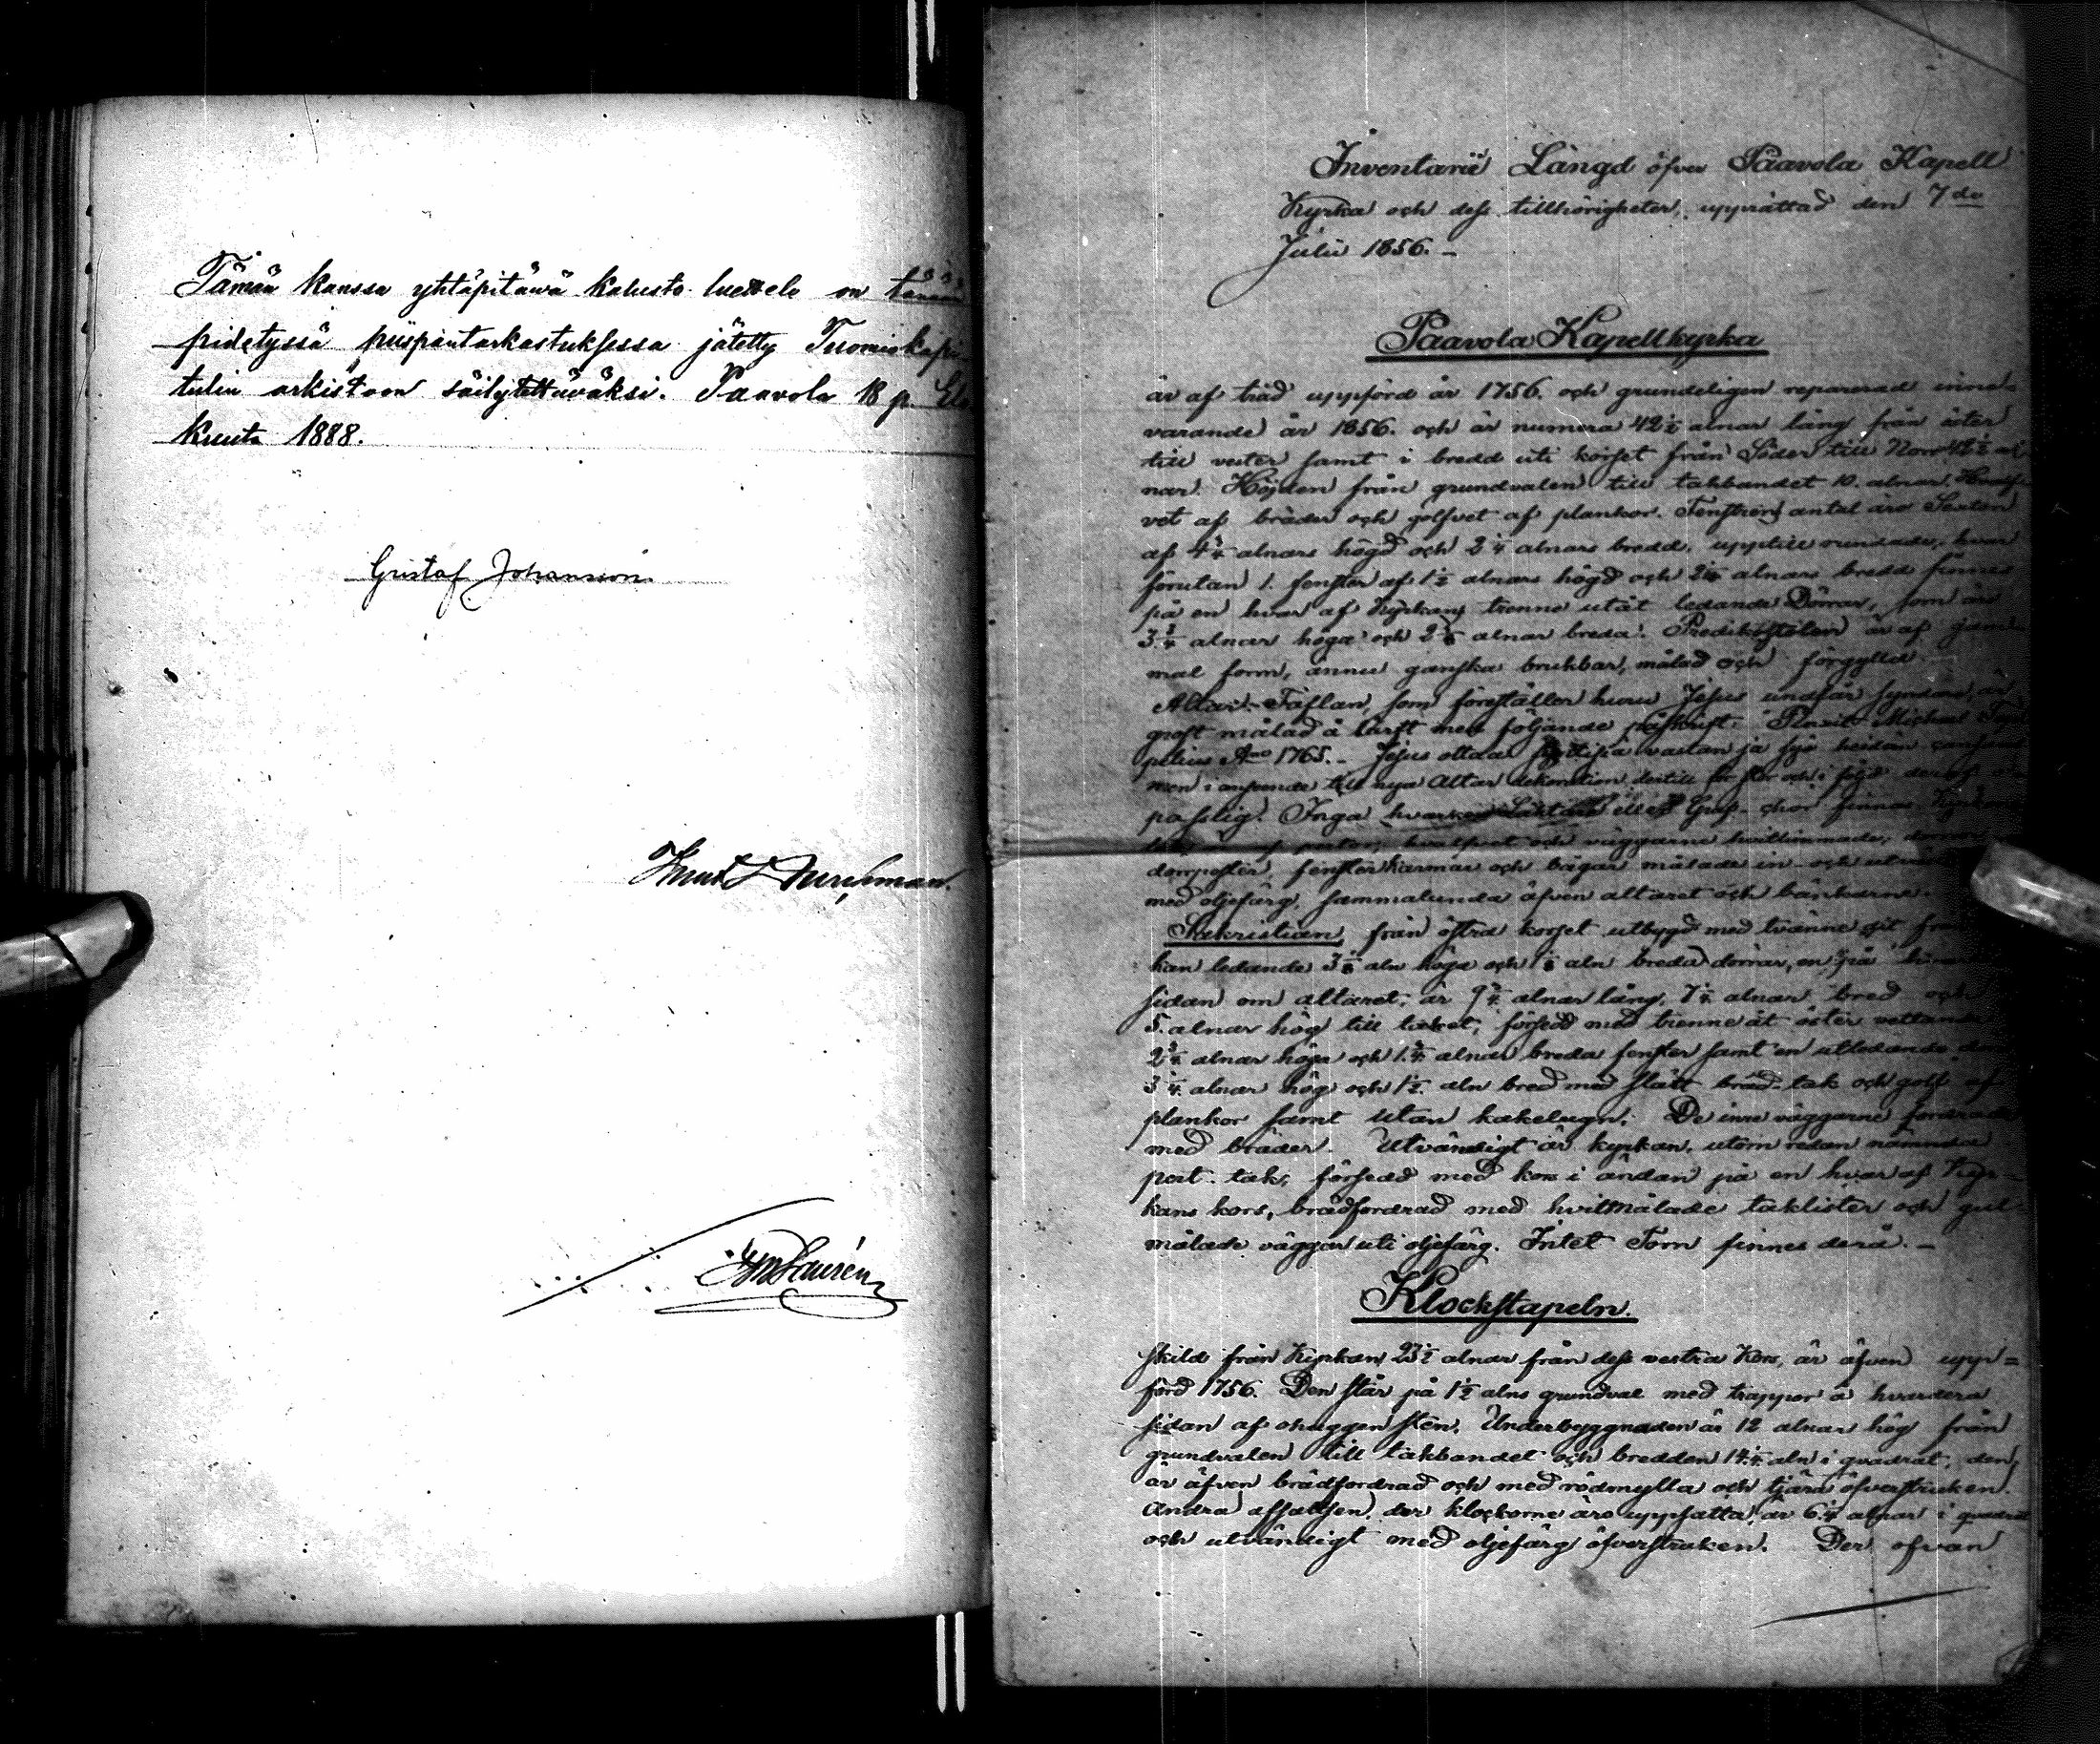 Tämän kanssa yhtäpitäwä kalusto luettelo on tänään
pidetyssä piispantarkastuksessa jätetty Tuomiokapi
tulin arkistoon säilytettäwäksi. Paavola 18 p. Elo
kuuta 1888.
Gustaf Johansson.
Inventarii Längd öfver Paavola Kapell
Kyrka och dess tillhörigheter, upprättad den 7de
Julii 1856. –
Paavola Kapellkyrka
är af träd uppförd år 1756. och grundeligen reparerad inne-
varande år 1856. och är numera 42½ alnar lång från öster
till vester samt i bredd uti korset från Söder till Norr 42½ al-
nar. Höjden från grundvalen till takbandet 10. alnar. Hvalf-
vet af bräder och golfvet af plankor. Fenstrens antal äro Sexton
af 4¾ alnars högd och 2¼ alnars bredd, upptill rundade, hvar
förutan 1. fenster af 1½ alnars högd och 2¼ alnars bredd finnes
på en hvar af Kyrkans trenne utåt ledande Dörrar, som äro
3¾ alnar höga och 2¼ alnar breda. Predikostolen är af gam-
mal form, ännu ganska brukbar, målad och förgylld.
Altar-Taflan, som föreställer huru Jesus undfår syndare, är
groft målad å lärft med följande påskrift: Pinxit Michael Top-
pelius Ano 1765. – Jesus ottaa syndisiä vastan ja syö heidän canssans
men i anseende till nya Altar dekoration dertill för stor och i följd deraf o-
passlig. Inga hvarken Läktare eller chor finnas.
hvalfvet och väggarne hvitlimmade,
dörrposter, fensterkarmar och bågar målade in- och utvändigt
med oljefärg, sammalunda äfven altaret och bänkarne.
Sakristian, från östra korset utbygd med tvänne dit från
kan ledande aln höga och aln breda dörrar, en på hvardera
sidan om altaret, är 9¾ alnar lång, 7¼ alnar bred och
5. alnar hög till taket, försedd med trenne åt öster vettande
2¾ alnar höga och 1¾ alnar breda fenster samt en utledande dörr
3¼ alnar hög och 1½ aln bred med slätt bräd-tak och golf af
plankor samt utan kakelugn. De inre väggarne fordrade
med bräder. Utvändigt är kyrkan, utom redan nämnda
pert-tak, försedd med kors i ändan på en hvar af Kyr-
kans kors, brädfordrad med hvitmålade taklister och gul-
målade väggar uti oljefärg. Intet Torn finnes derå. –
Klockstapeln.
skild från Kyrkan 23½ alnar från dess vestra Kors, är äfven upp=
förd 1756. Den står på 1½ alns grundval med trappor å hvardera
sidan af ohuggen sten. Underbyggnaden är 12 alnar hög från
grundvalen till takbandet och bredden 14¼ aln i qvadrat, den
är äfven brädfordrad och med rödmylla och tjära öfverstruken.
Andra afsatsen, der klockorne äro uppsatta, är 6¼ alnar i qvadrat
och utvändigt med oljefärg öfverstruken. Der ofvan